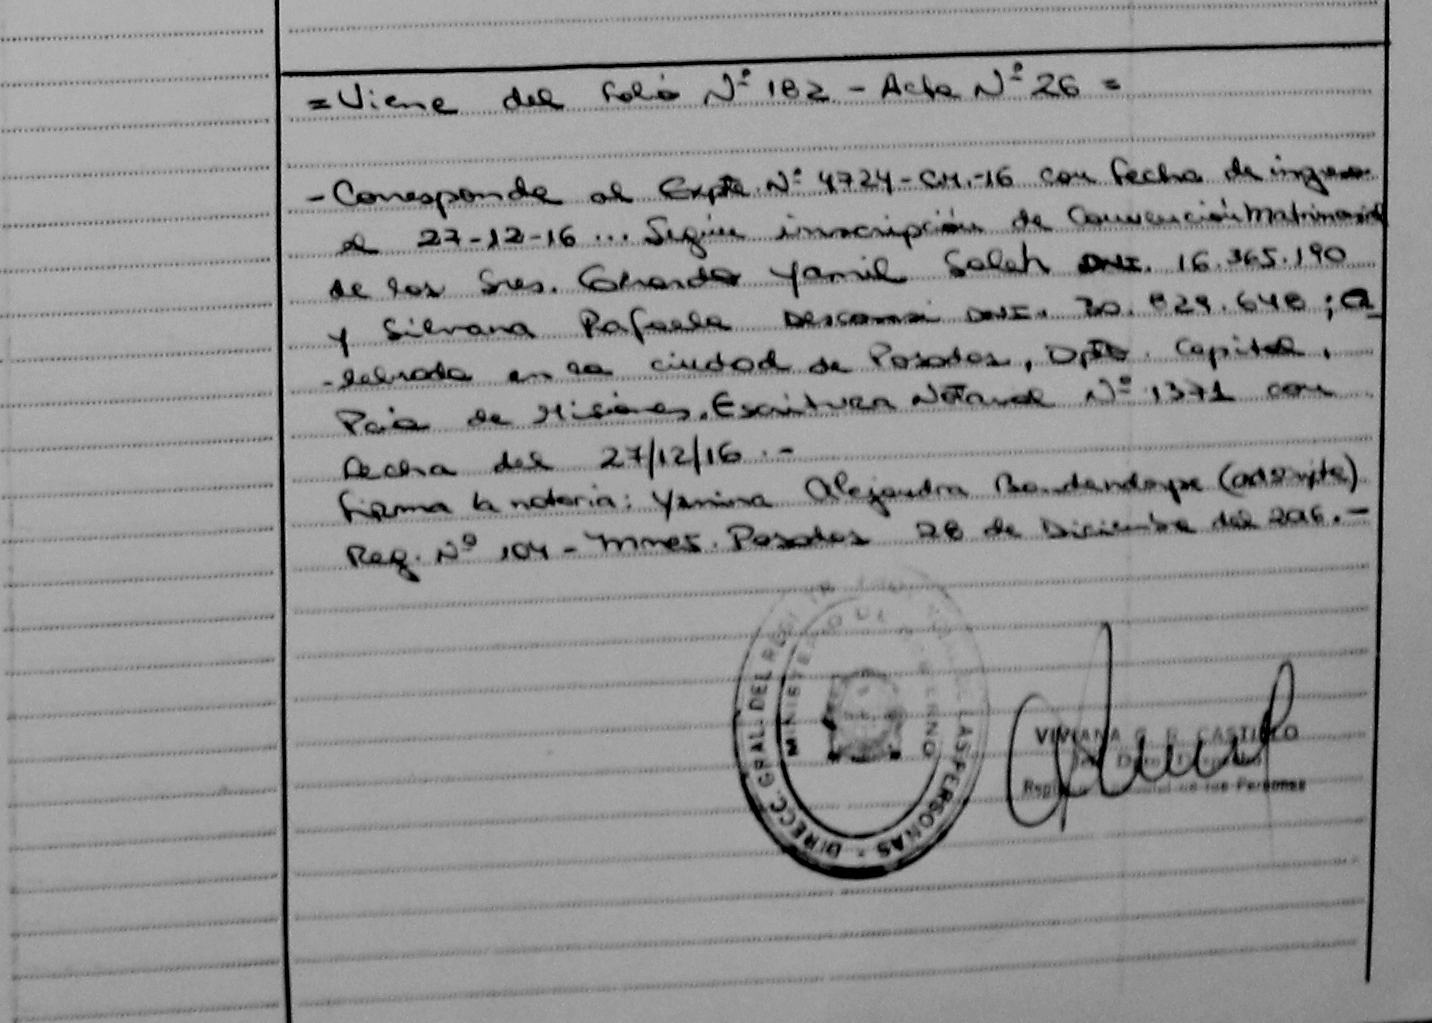 = Viene del folio Nº 182 - Acta Nº 26 =
- Corresponde al Expte. Nº 4724-CM.-16 con fecha de ingreso
el 27-12-16 ... Según inscripción de Convención Matrimonial
de los Sres. Yamil Saleh DNI. 16.365.190
y Silvana Rafaela DNI. 20.829.648 ; Ce
-lebrada en la ciudad de Posadas, Dpto. Capital,
Pcia de Misiones. Escritura Notarial Nº 1371 con
fecha del 27/12/16 .-
firma la notaria: Yanina Alejandra (adscripta)
Reg. Nº 104 - Mnes. Posadas 28 de Diciembre del 2016.-
DIRECC. GRAL. DEL REG. DE LAS PERSONAS -
MINISTERIO DE GOBIERNO
VIVIANA G. R. CASTILLO
de las Personas